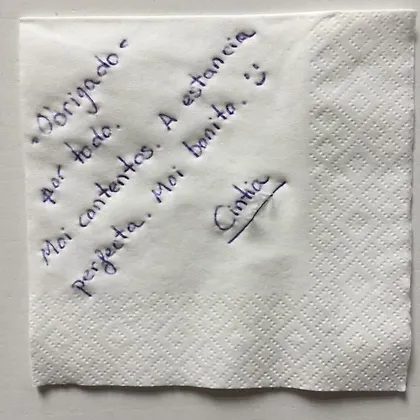 "Obrigado"
por todo.
Moi contentos. A estancia
perfecta. Moi bonita. :)
Cintia